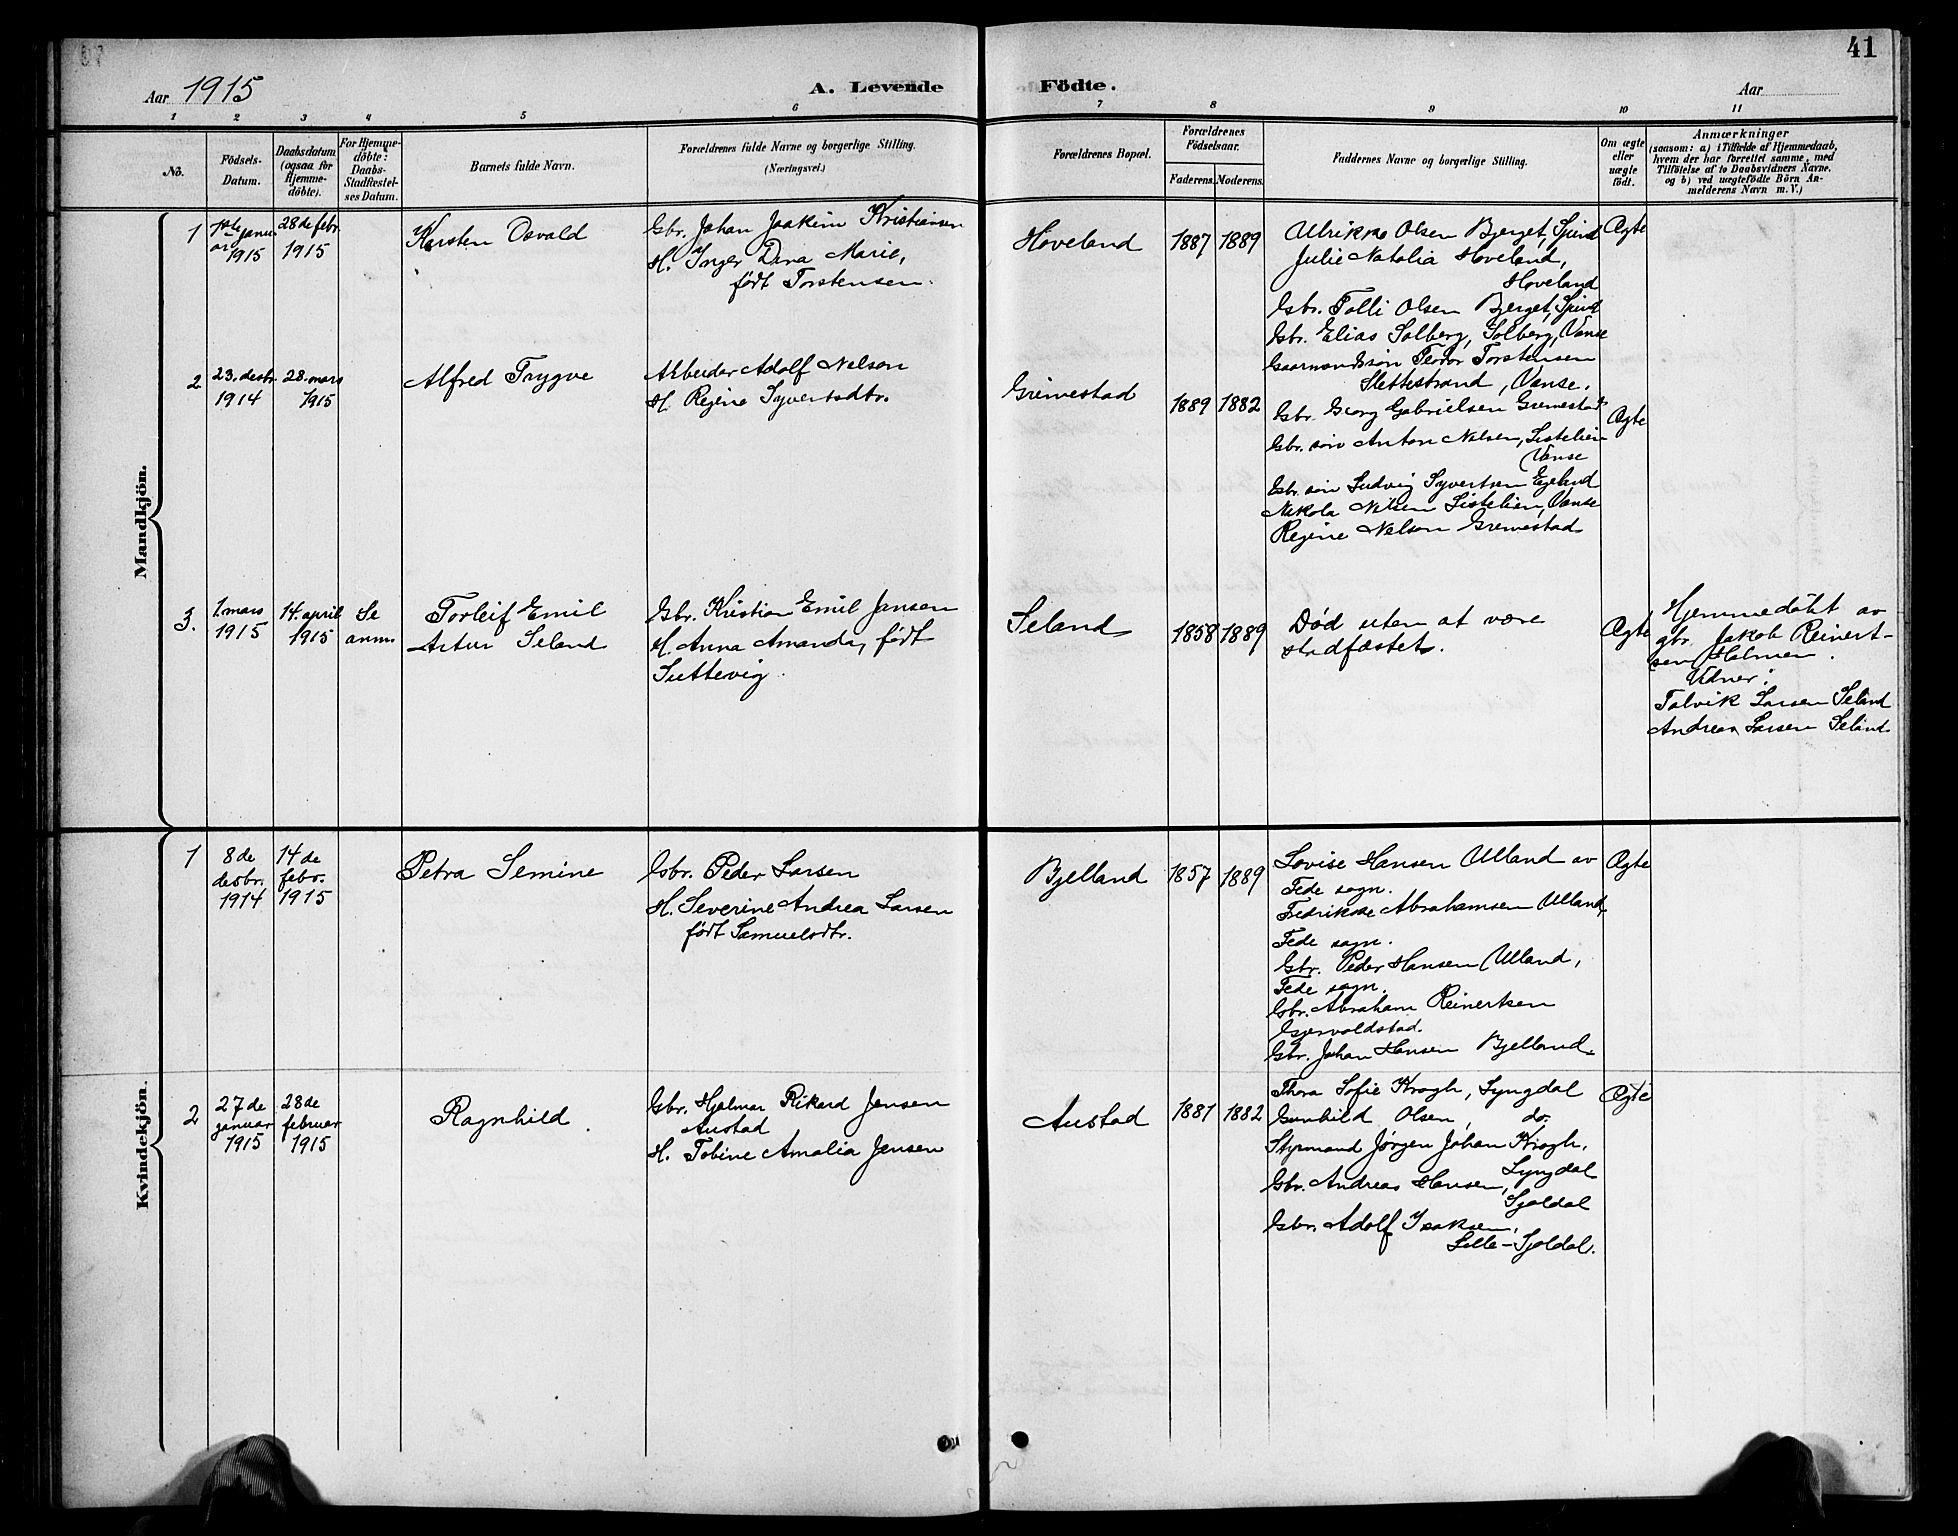 41
Aar 1915
A. Levende Födte.
Aar
1 2 3 4 5 6 7 8 9 10 11
No.
Födsels-
Datum.
Daabsdatum
(ogsaa for
Hjemme-
döbte).
For Hjemme-
döbte:
Daabs-
Stadfæstel-
ses Datum.
Barnets fulde Navn.
Forældrenes fulde Navne og borgerlige Stilling.
(Næringsvei.)
Forældrenes Bopæl.
Forældrenes
Födselsaar.
Faderens. Moderens.
Faddernes Navne og borgerlige Stilling.
Om ægte
eller
uægte
födt.
Anmærkninger
(saasom: a) i Tilfælde af Hjemmedaab,
hvem der har forrettet samme, med
Tilföielse af to Daabsvidners Navne,
og b) ved uægtefödte Börn An-
melderens Navn m. V.)
Mandkjön.
1
1ste janu-
ar 1915
28de febr.
1915
Karsten Osvald
Gbr. Johan Joakim Kristiansen
H. Inger Dina Marie,
født Torstensen.
Hoveland
1887 1889
Ulrikke Olsen Bjerget, Spind
Julie Natalia Hoveland,
Hoveland
Gbr. Tolli Olsen Bjerget, Spind
Gbr. Elias Solberg, Solberg, Vanse
Gaarmandssøn Teodor Torstensen
Slettestrand, Vanse.
Ægte
2
23. desbr.
1914
28. mars
1915
Alfred Trygve
Arbeider Adolf Nelson
H. Regine Syvertsdtr.
Grimestad
1889 1882
Gbr. Georg Gabrielsen Gremestad
Gbr. søn Anton Nelsen, Listelien
Vanse
Gbr. søn Ludvig Syvertsen Eigeland
Nikola Nilsen Listelien, Vanse
Regine Nelson Gremestad
Ægte
3.
1. mars
1915
14. april
1915
Se
anm.
Torleif Emil
Artur Seland
Gbr. Kristian Emil Jansen
H. Anna Amanda, født
Suttevig.
Seland
1858 1889
Død uten at være
stadfæstet.
Ægte
Hjemmedøbt av
gbr. Jakob Reinert-
sen Holmen.
Vidner:
Tolvik Larsen Seland
Andreas Larsen Seland
Kvindekjön.
1
8de
desbr.
1914
14de
febr.
1915
Petra Semine
Gbr. Peder Larsen
H. Severine Andrea Larsen
født Samuelsdtr.
Bjelland
1857 1889
Lovise Hansen Ulland av
Fede sogn.
Fredrikke Abrahamsen Ulland,
Fede sogn.
Gbr. Peder Hansen Ulland,
Fede sogn.
Gbr. Abraham Reinertsen
Gjervoldstad.
Gbr. Johan Hansen Bjelland.
Ægte
2
27de
januar
1915
28de
februar
1915
Ragnhild
Gbr. Hjalmar Rikard Jensen
Austad
H. Tobine Amalia Jensen
Austad
1881 1882
Thora Sofie Krogh, Lyngdal
Gunhild Olsen, do.
Styrmand Jørgen Johan Krogh,
Lyngdal
Gbr. Andreas Hansen,
Sjoldal
Gbr. Adolf Isaksen,
Lille-Sjoldal.
Ægte